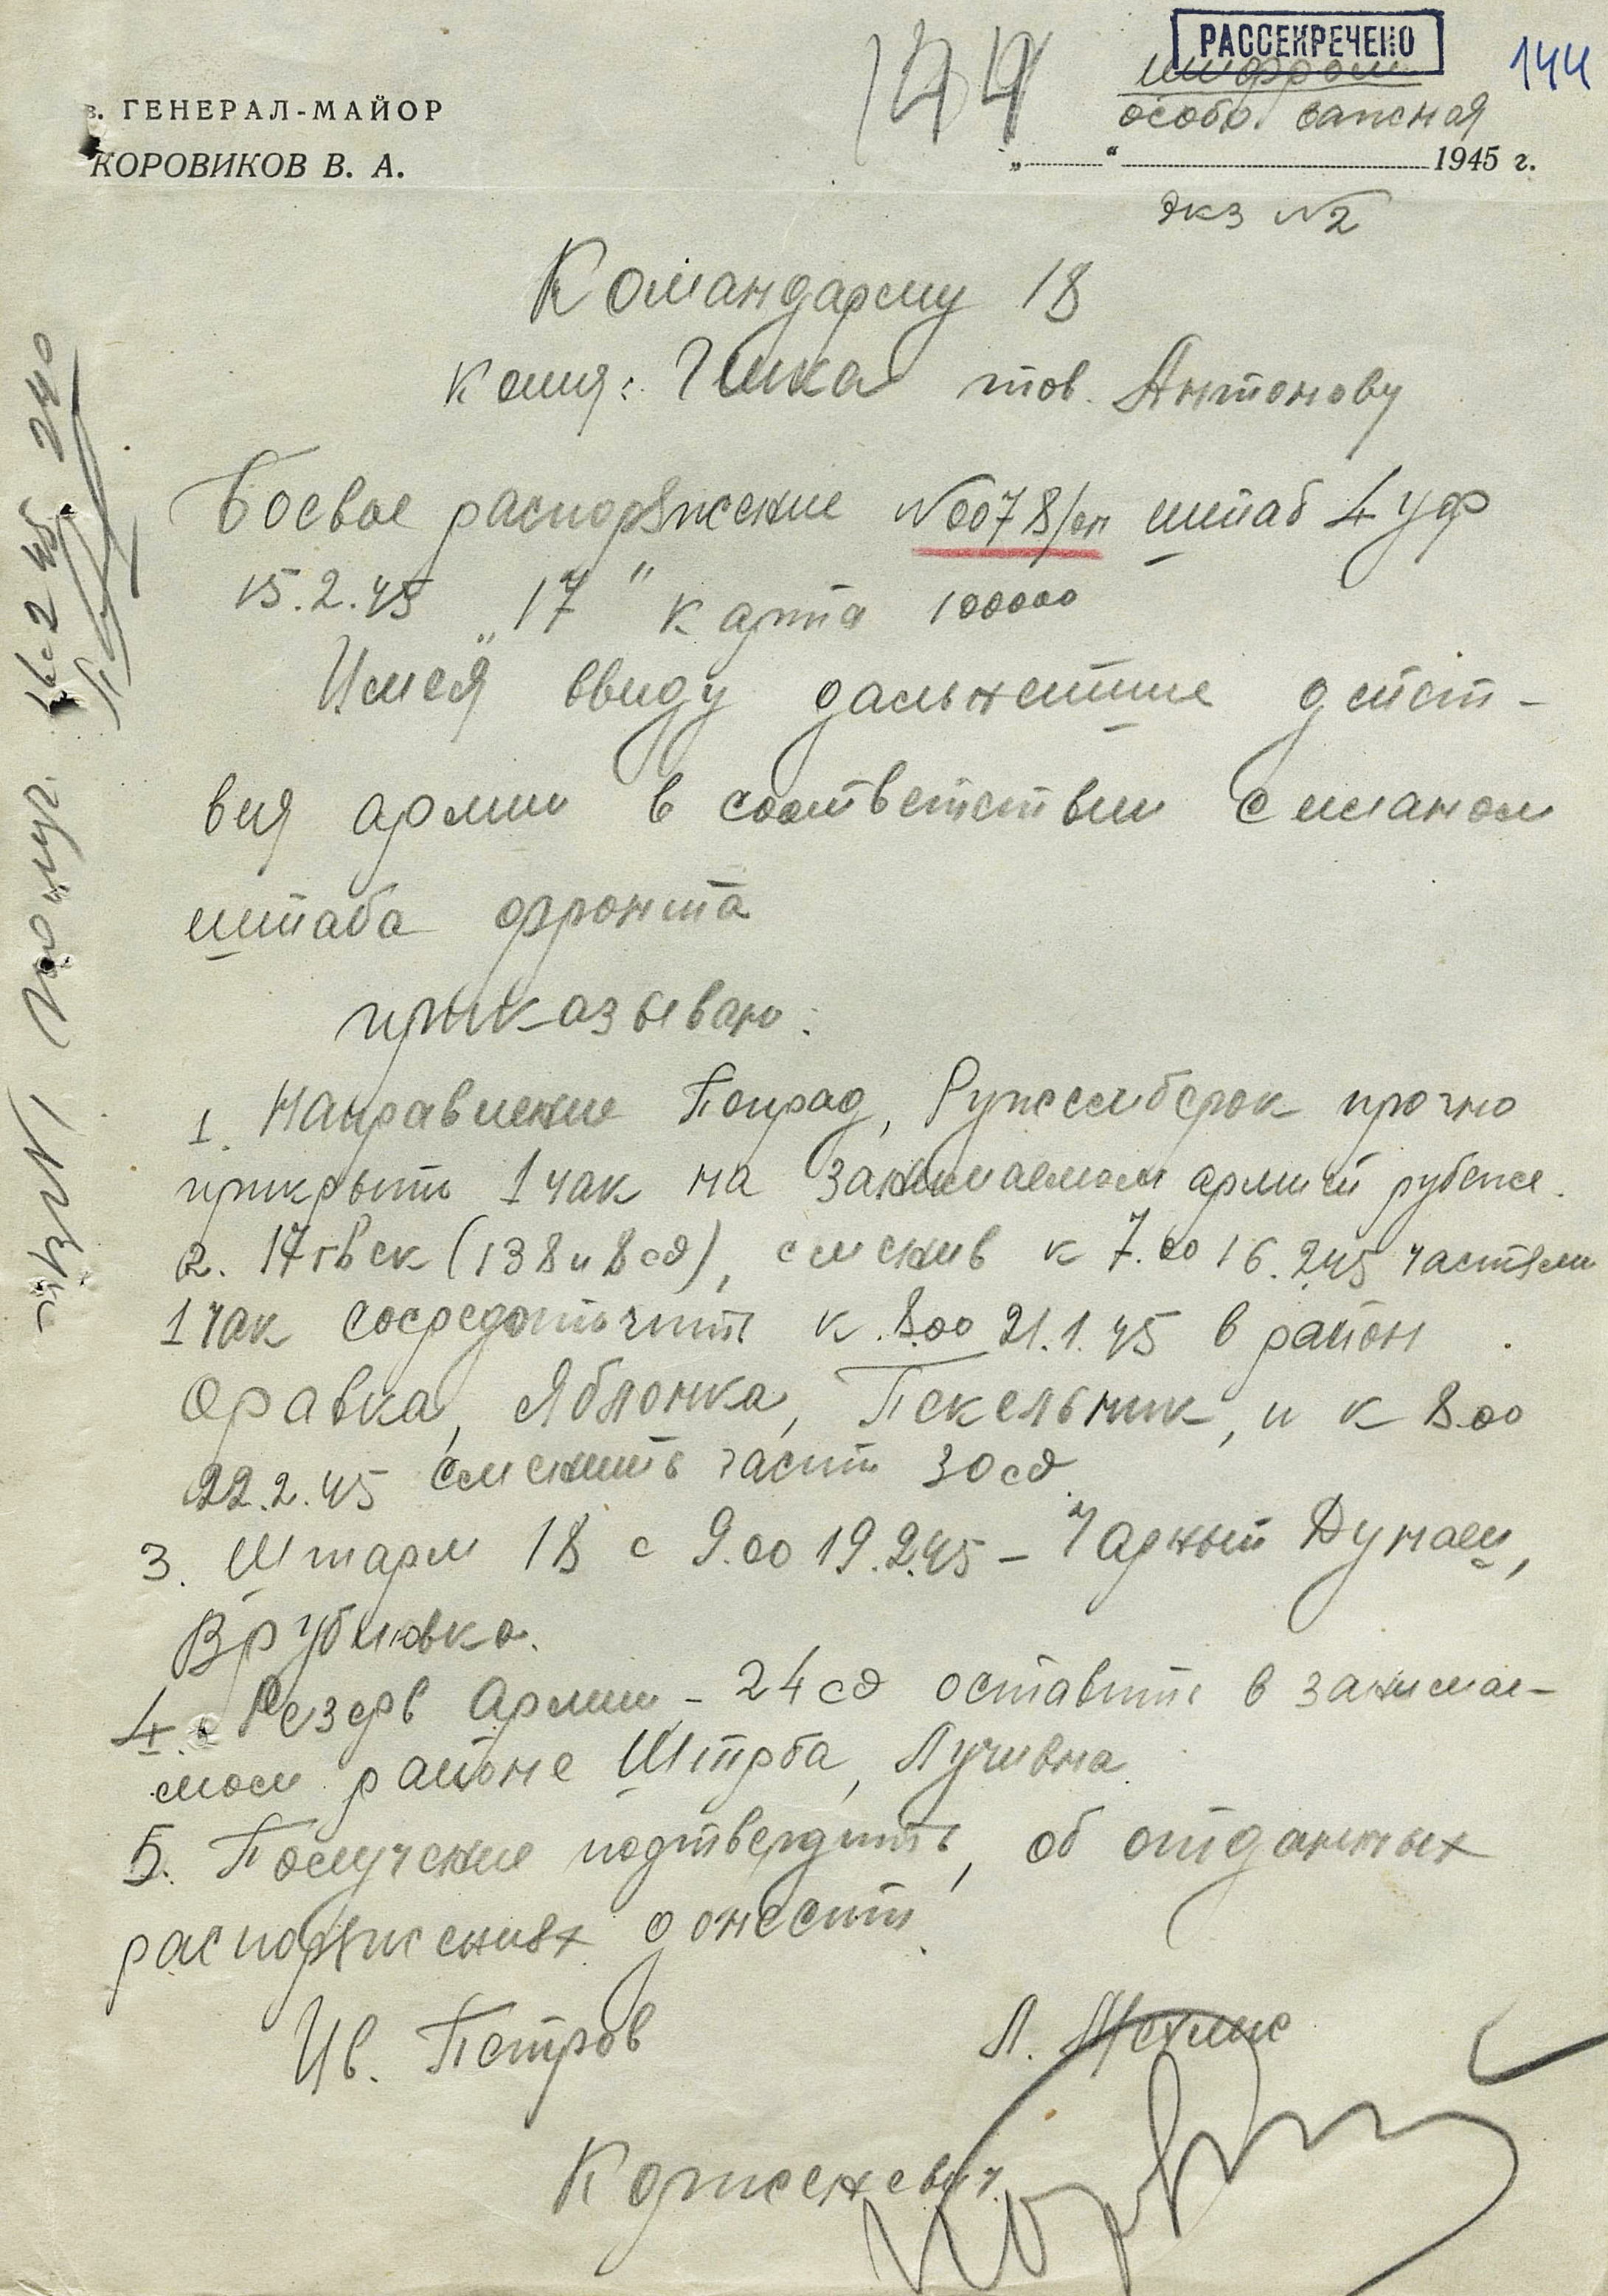 РАССЕКРЕЧЕНО
144
144
шифром
особо важная
в. ГЕНЕРАЛ-МАЙОР
КОРОВИКОВ В. А.
„ “ 1945 г.
экз №2
Командарму 18
копия: Гшка тов. Антонову
Боевое распоряжение №0078/оп штаб 4 уф
15.2.45 17" карта 100000
Имея ввиду дальнейшие дейст-
вия армии в соответствии с планом
штаба фронта
приказываю:
1. Направление Попрад, Ружемберок прочно
прикрыть 1 чак на занимаемом армией рубеже.
2. 17 гв ск (138 и 8 сд), сменив к 7.00 16.2.45 частями
1 чак сосредоточить к 8.00 21.1.45 в район
Оравка, Яблонка, Пекельник, и к 8.00
22.2.45 сменить част 30 сд
3. Штарм 18 с 9.00 19.2.45 – Чарный Дунаец,
Врублювка.
4. Резерв Армии – 24 сд оставить в занимае-
мом районе Штрба, Лучивна
5. Получение подтвердить, об отданных
распоряжениях донести.
Ив. Петров Л. Мехлис
Корженевич
экз №1